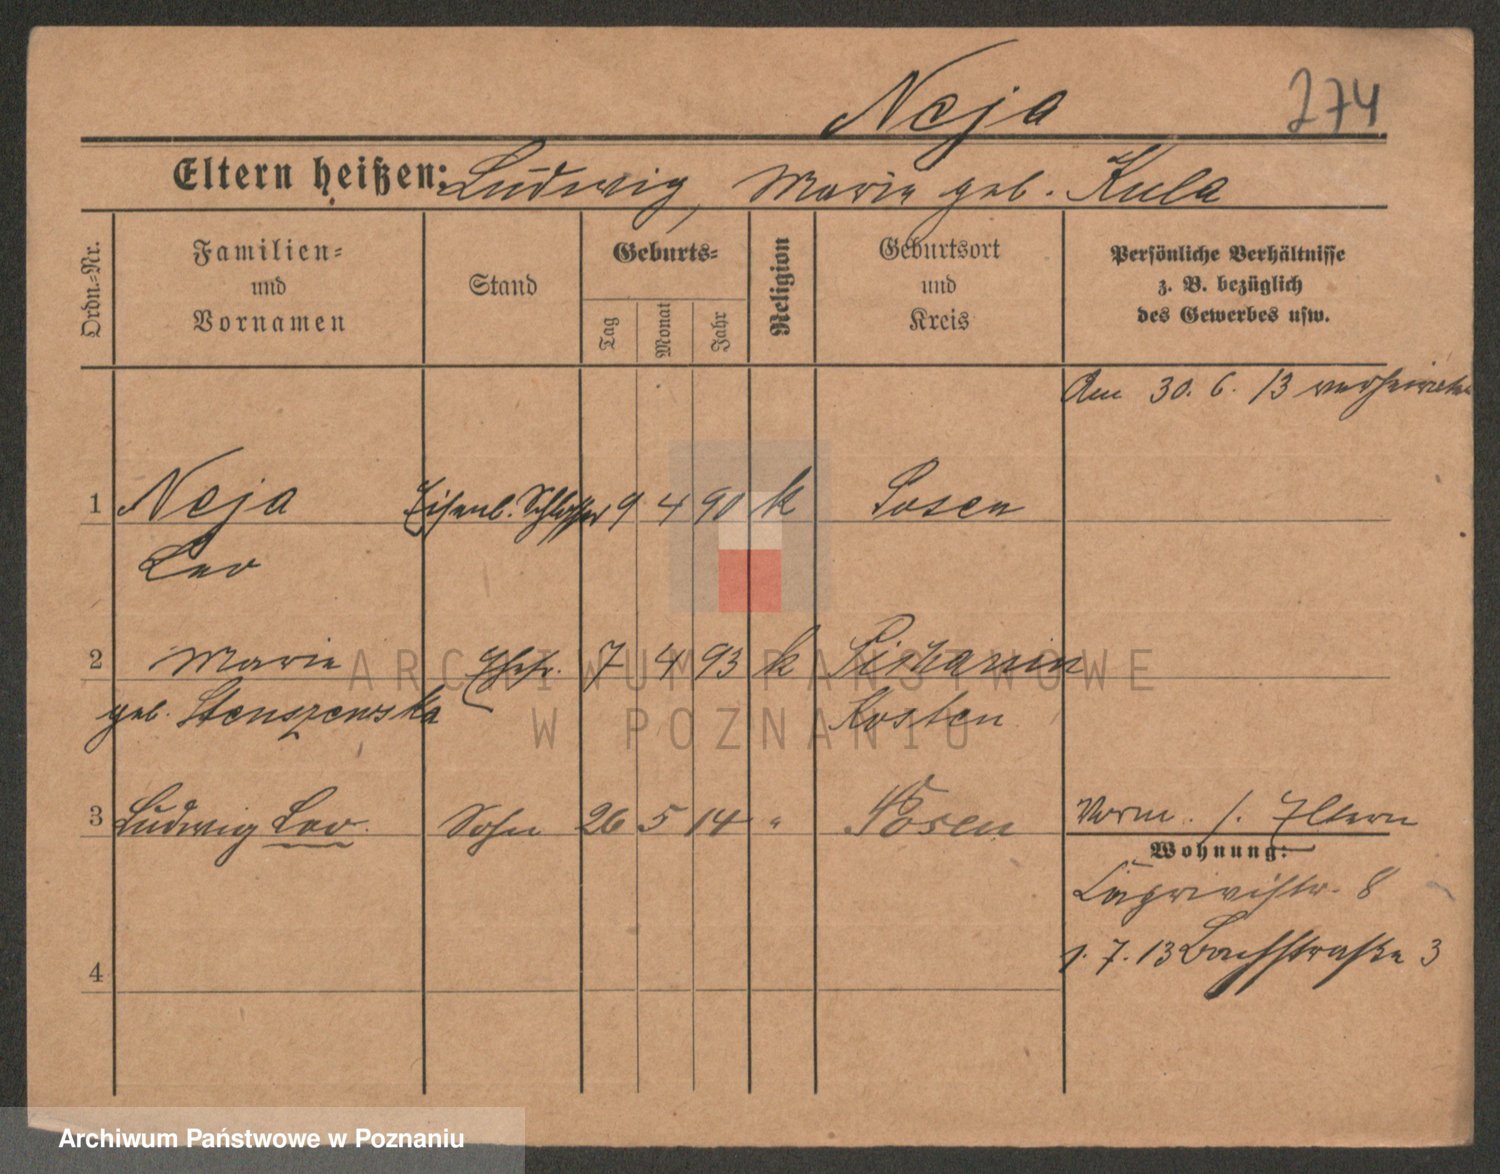 Neja
274
Eltern heißen: Ludwig, Marie geb. Kula
Ordn.-Nr.
Familien-
und
Vornamen
Stand
Geburts-
Tag
Monat
Jahr
Religion
Geburtsort
und
Kreis
Persönliche Verhältnisse
z. B. bezüglich
des Gewerbes usw.
Am 30. 6. 13 verheiratet
1 Neja Eisenb. Schlosser 9 4 90 k Posen
Leo
2 Marie Ehefr. 7 4 93 k
geb. Stenszewska Kosten
3 Ludwig Leo Sohn 26 5 14 " Posen
Vorm. s. Eltern
Wohnung:
8
1. 7. 13 Bachstraße 3
4
ARCHIWUM PAŃSTWOWE
W POZNANIU
Archiwum Państwowe w Poznaniu